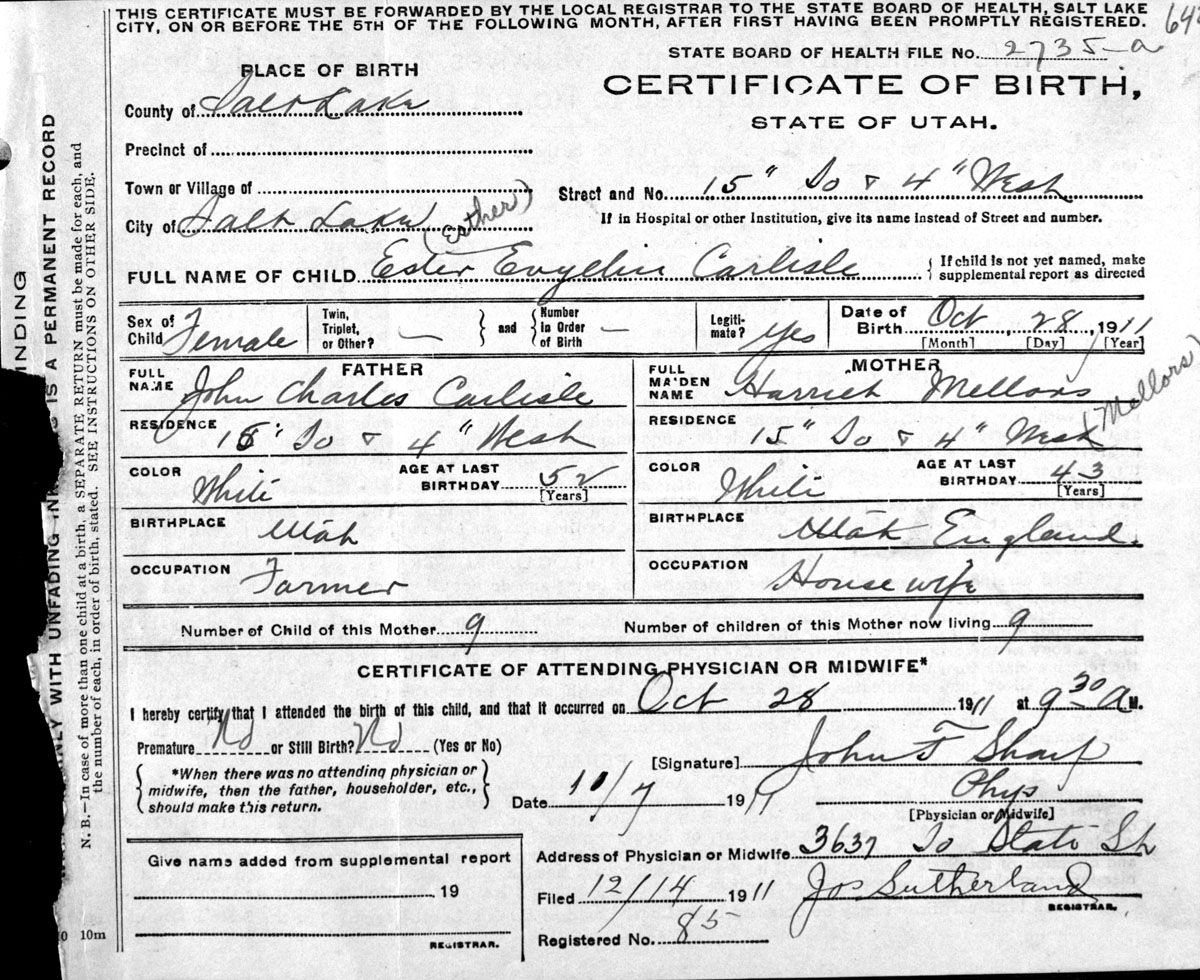 THIS CERTIFICATE MUST BE FORWARDED BY THE LOCAL REGISTRAR TO THE STATE BOARD OF HEALTH, SALT LAKE
CITY, ON OR BEFORE THE 5TH OF THE FOLLOWING MONTH, AFTER FIRST HAVING BEEN PROMPTLY REGISTERED.
STATE BOARD OF HEALTH FILE No. 2735-a
PLACE OF BIRTH
CERTIFICATE OF BIRTH,
STATE OF UTAH.
County of Salt Lake
Precinct of
Town or Village of
Street and No. 15" So & 4" West
City of Salt Lake
If in Hospital or other Institution, give its name instead of Street and number.
(Esther)
FULL NAME OF CHILD Ester Evyelin Carlisle
{ If child is not yet named, make
supplemental report as directed
Sex of Child Female
Twin, Triplet, or Other? —
and
Number in Order of Birth —
Legitimate? Yes
Date of Birth Oct 28, 1911
[Month] [Day] [Year]
FATHER
FULL NAME John Charles Carlisle
RESIDENCE 15" So & 4" West
COLOR White
AGE AT LAST BIRTHDAY 52
[Years]
BIRTHPLACE Utah
OCCUPATION Farmer
MOTHER
FULL MAIDEN NAME Harriet Mellors
(Mellors)
RESIDENCE 15" So & 4" West
COLOR White
AGE AT LAST BIRTHDAY 43
[Years]
BIRTHPLACE Utah England.
OCCUPATION Housewife
Number of Child of this Mother 9
Number of children of this Mother now living 9
CERTIFICATE OF ATTENDING PHYSICIAN OR MIDWIFE*
I hereby certify that I attended the birth of this child, and that it occurred on Oct 28 1911 at 9 30 A M.
Premature No or Still Birth? No (Yes or No)
[Signature] John F Sharp
*When there was no attending physician or
midwife, then the father, householder, etc.,
should make this return.
Date 11/7 1911
Phys
[Physician or Midwife]
Give name added from supplemental report
19
REGISTRAR.
Address of Physician or Midwife 3637 So State St
Filed 12/14 1911
Jos Sutherland
REGISTRAR.
Registered No. 85
10m
INDING
NLY WITH UNFADING IN IS A PERMANENT RECORD
N. B.—In case of more than one child at a birth, a SEPARATE RETURN must be made for each, and
the number of each, in order of birth, stated. SEE INSTRUCTIONS ON OTHER SIDE.